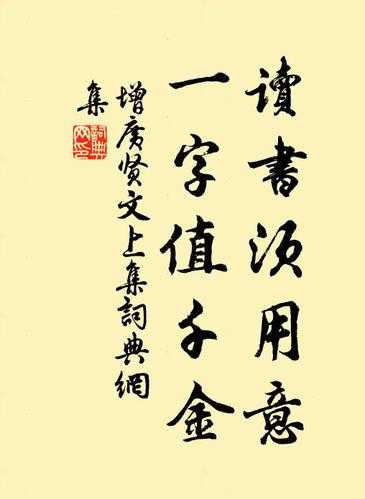 讀書須用意
一字值千金
增廣贤文上集詞典網
集